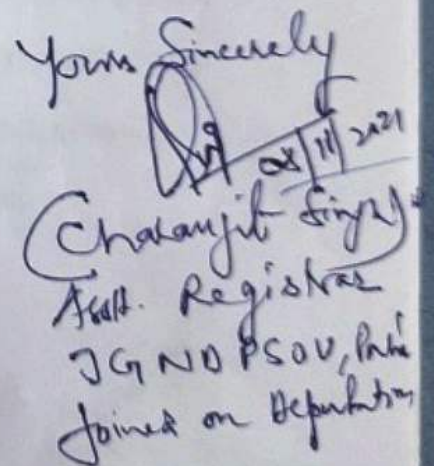 Yours Sincerely
08/11/2021
(Charanjit Singh)
Asstt. Registrar
JGNDPSOU, 
Joined on Deputation